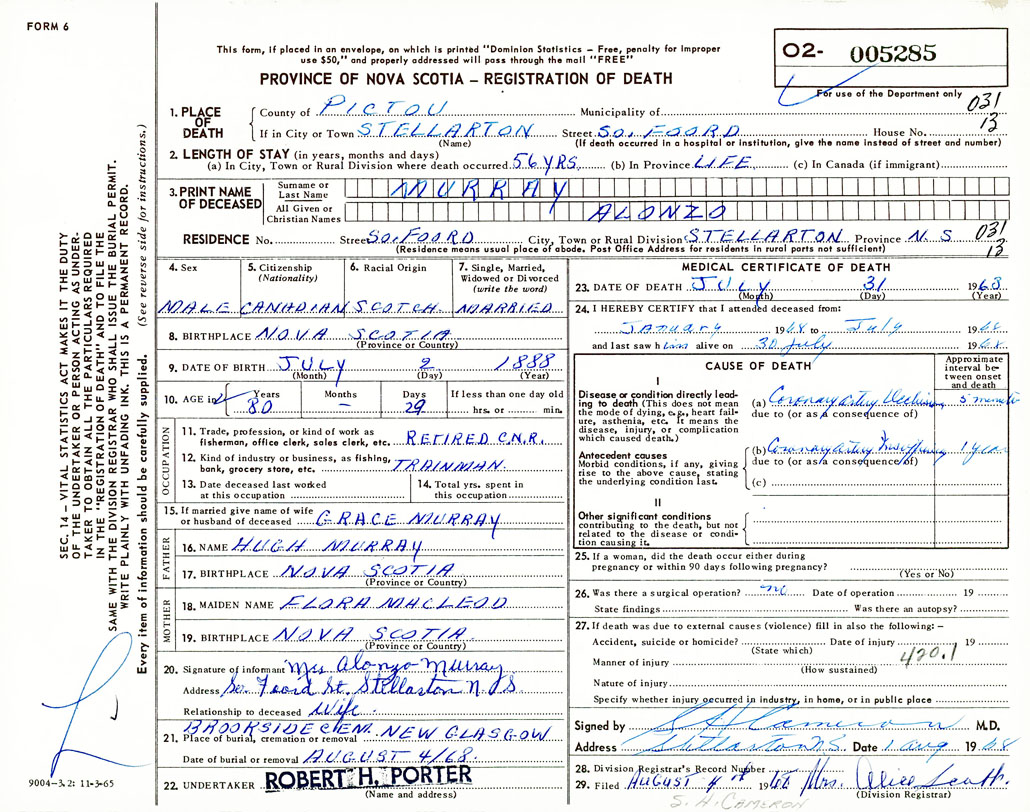 FORM 6
This form, if placed in an envelope, on which is printed "Dominion Statistics – Free, penalty for improper
use $50," and properly addressed will pass through the mail "FREE"
PROVINCE OF NOVA SCOTIA – REGISTRATION OF DEATH
O2- 005285
For use of the Department only
031
13
1. PLACE OF DEATH
County of PICTOU Municipality of
If in City or Town STELLARTON Street SO. FOORD House No.
(Name) (If death occurred in a hospital or institution, give the name instead of street and number)
2. LENGTH OF STAY (in years, months and days)
(a) In City, Town or Rural Division where death occurred 56 YRS. (b) In Province LIFE (c) In Canada (if immigrant)
3. PRINT NAME OF DECEASED
Surname or Last Name MURRAY
All Given or Christian Names ALONZO
RESIDENCE No. Street SO. FOORD City, Town or Rural Division STELLARTON Province N. S
(Residence means usual place of abode. Post Office Address for residents in rural parts not sufficient)
031
13
4. Sex MALE
5. Citizenship (Nationality) CANADIAN
6. Racial Origin SCOTCH
7. Single, Married, Widowed or Divorced (write the word) MARRIED
8. BIRTHPLACE NOVA SCOTIA
(Province or Country)
9. DATE OF BIRTH JULY 2 1888
(Month) (Day) (Year)
10. AGE in Years 80 Months – Days 29 If less than one day old hrs. or min.
OCCUPATION
11. Trade, profession, or kind of work as
fisherman, office clerk, sales clerk, etc. RETIRED C.N.R.
12. Kind of industry or business, as fishing,
bank, grocery store, etc. TRAINMAN.
13. Date deceased last worked
at this occupation
14. Total yrs. spent in
this occupation
15. If married give name of wife
or husband of deceased GRACE MURRAY
FATHER
16. NAME HUGH MURRAY
17. BIRTHPLACE NOVA SCOTIA
(Province or Country)
MOTHER
18. MAIDEN NAME FLORA MACLEOD
19. BIRTHPLACE NOVA SCOTIA.
(Province or Country)
20. Signature of informant Mrs Alonzo Murray
Address So. Foord St. Stellarton N. S
Relationship to deceased Wife.
BROOKSIDE CEM. NEW GLASGOW
21. Place of burial, cremation or removal
Date of burial or removal AUGUST 4/68.
22. UNDERTAKER ROBERT H. PORTER
(Name and address)
MEDICAL CERTIFICATE OF DEATH
23. DATE OF DEATH JULY 31 1968
(Month) (Day) (Year)
24. I HEREBY CERTIFY that I attended deceased from:
January 1968 to July 1968
and last saw him alive on 30 July 1968
CAUSE OF DEATH
Approximate interval between onset and death
I
Disease or condition directly leading to death (This does not mean the mode of dying, e.g., heart failure, asthenia, etc. It means the disease, injury, or complication which caused death.)
(a) Coronary artery 5 minute
due to (or as a consequence of)
Antecedent causes
Morbid conditions, if any, giving rise to the above cause, stating the underlying condition last.
(b) Coronary artery Insufficiency 1 year
due to (or as a consequence of)
(c)
II
Other significant conditions
contributing to the death, but not related to the disease or condition causing it.
25. If a woman, did the death occur either during
pregnancy or within 90 days following pregnancy?
(Yes or No)
26. Was there a surgical operation? no Date of operation 19
State findings Was there an autopsy?
27. If death was due to external causes (violence) fill in also the following: –
Accident, suicide or homicide? Date of injury 19
(State which)
420.1
Manner of injury
(How sustained)
Nature of injury
Specify whether injury occurred in industry, in home, or in public place
Signed by S H Cameron M.D.
Address Stellarton N.S. Date 1 Aug 1968
28. Division Registrar's Record Number
29. Filed AUGUST 4th 1968 Mrs. Alice Scott.
(Division Registrar)
S. H. CAMERON
SEC. 14 – VITAL STATISTICS ACT MAKES IT THE DUTY
OF THE UNDERTAKER OR PERSON ACTING AS UNDER-
TAKER TO OBTAIN ALL THE PARTICULARS REQUIRED
IN THE "REGISTRATION OF DEATH" AND TO FILE THE
SAME WITH THE DIVISION REGISTRAR WHO SHALL ISSUE THE BURIAL PERMIT.
WRITE PLAINLY WITH UNFADING INK. THIS IS A PERMANENT RECORD.
Every item of information should be carefully supplied. (See reverse side for instructions.)
9004-3.2: 11-3-65